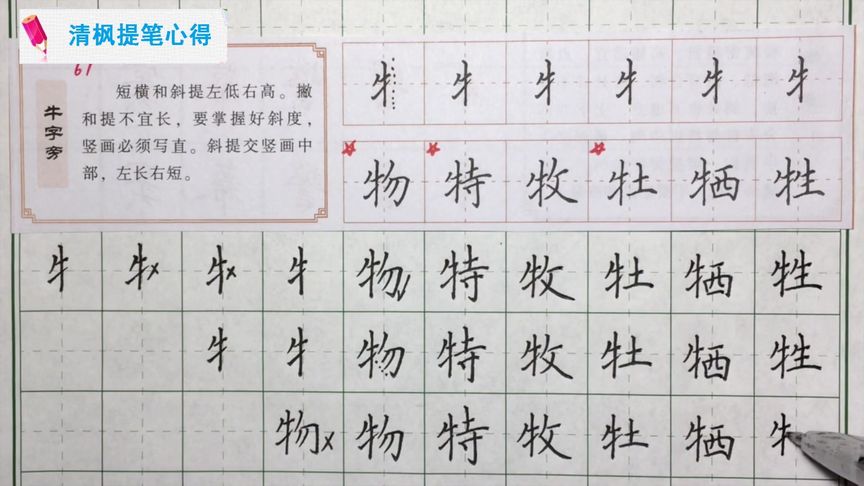 清枫提笔心得
61
牛字旁
短横和斜提左低右高。撇
和提不宜长，要掌握好斜度，
竖画必须写直。斜提交竖画中
部，左长右短。
牜 牜 牜 牜 牜 牜
物 特 牧 牡 牺 牲
牜 牜x 牜x 牜 物 特 牧 牡 牺 牲
牜 牜 物 特 牧 牡 牺 牲
物x 物 特 牧 牡 牺 牜